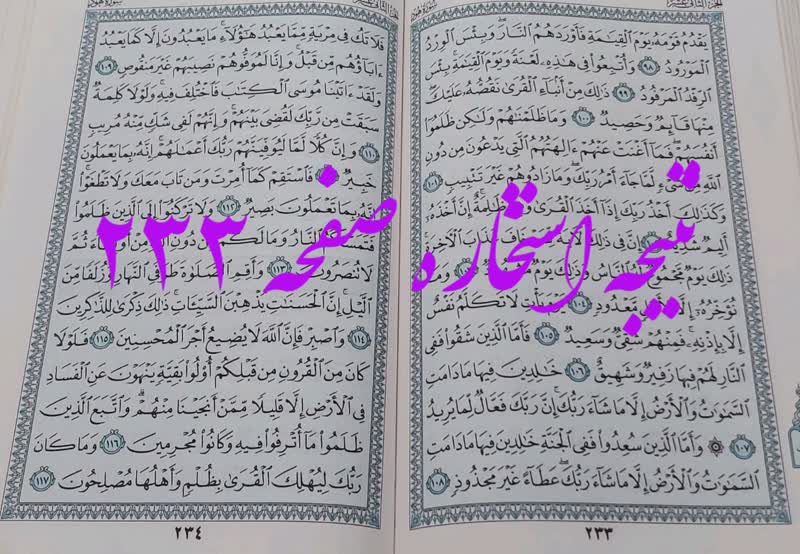 يَقْدُمُ قَوْمَهُۥ يَوْمَ ٱلْقِيَٰمَةِ فَأَوْرَدَهُمُ ٱلنَّارَ ۖ وَبِئْسَ ٱلْوِرْدُ
ٱلْمَوْرُودُ ٩٨ وَأُتْبِعُوا۟ فِى هَٰذِهِۦ لَعْنَةً وَيَوْمَ ٱلْقِيَٰمَةِ ۚ بِئْسَ
ٱلرِّفْدُ ٱلْمَرْفُودُ ٩٩ ذَٰلِكَ مِنْ أَنۢبَآءِ ٱلْقُرَىٰ نَقُصُّهُۥ عَلَيْكَ ۖ
مِنْهَا قَآئِمٌ وَحَصِيدٌ ١٠٠ وَمَا ظَلَمْنَٰهُمْ وَلَٰكِن ظَلَمُوٓا۟
أَنفُسَهُمْ ۖ فَمَآ أَغْنَتْ عَنْهُمْ ءَالِهَتُهُمُ ٱلَّتِى يَدْعُونَ مِن دُونِ
ٱللَّهِ مِن شَىْءٍ لَّمَّا جَآءَ أَمْرُ رَبِّكَ ۖ وَمَا زَادُوهُمْ غَيْرَ تَتْبِيبٍ ١٠١
وَكَذَٰلِكَ أَخْذُ رَبِّكَ إِذَآ أَخَذَ ٱلْقُرَىٰ ظَٰلِمَةٌ ۚ إِنَّ أَخْذَهُۥٓ
أَلِيمٌ شَدِيدٌ إِنَّ فِى ذَٰلِكَ خَافَ عَذَابَ ٱلْءَاخِرَةِ ۚ
ذَٰلِكَ يَوْمٌ مَّجْمُوعٌ ٱلنَّاسُ وَذَٰلِكَ يَوْمٌ
نُؤَخِّرُهُۥٓ إِلَّا مَّعْدُودٍ ١٠٤ يَوْمَ يَأْتِ لَا تَكَلَّمُ نَفْسٌ
إِلَّا بِإِذْنِهِۦ ۚ فَمِنْهُمْ شَقِىٌّ وَسَعِيدٌ ١٠٥ فَأَمَّا ٱلَّذِينَ شَقُوا۟ فَفِى
ٱلنَّارِ لَهُمْ فِيهَا زَفِيرٌ وَشَهِيقٌ ١٠٦ خَٰلِدِينَ فِيهَا مَا دَامَتِ
ٱلسَّمَٰوَٰتُ وَٱلْأَرْضُ إِلَّا مَا شَآءَ رَبُّكَ ۚ إِنَّ رَبَّكَ فَعَّالٌ لِّمَا يُرِيدُ
١٠٧ ۞ وَأَمَّا ٱلَّذِينَ سُعِدُوا۟ فَفِى ٱلْجَنَّةِ خَٰلِدِينَ فِيهَا مَا دَامَتِ
ٱلسَّمَٰوَٰتُ وَٱلْأَرْضُ إِلَّا مَا شَآءَ رَبُّكَ ۖ عَطَآءً غَيْرَ مَجْذُوذٍ ١٠٨
٢٣٣
فَلَا تَكُ فِى مِرْيَةٍ مِّمَّا يَعْبُدُ هَٰٓؤُلَآءِ ۚ مَا يَعْبُدُونَ إِلَّا كَمَا يَعْبُدُ
ءَابَآؤُهُم مِّن قَبْلُ ۚ وَإِنَّا لَمُوَفُّوهُمْ نَصِيبَهُمْ غَيْرَ مَنقُوصٍ ١٠٩
وَلَقَدْ ءَاتَيْنَا مُوسَى ٱلْكِتَٰبَ فَٱخْتُلِفَ فِيهِ ۚ وَلَوْلَا كَلِمَةٌ
سَبَقَتْ مِن رَّبِّكَ لَقُضِىَ بَيْنَهُمْ ۚ وَإِنَّهُمْ لَفِى شَكٍّ مِّنْهُ مُرِيبٍ
١١٠ وَإِنَّ كُلًّا لَّمَّا لَيُوَفِّيَنَّهُمْ رَبُّكَ أَعْمَٰلَهُمْ ۚ إِنَّهُۥ بِمَا يَعْمَلُونَ
خَبِيرٌ فَٱسْتَقِمْ كَمَآ أُمِرْتَ وَمَن تَابَ مَعَكَ وَلَا تَطْغَوْا۟ ۚ
إِنَّهُۥ بِمَا تَعْمَلُونَ بَصِيرٌ ١١٢ وَلَا تَرْكَنُوٓا۟ إِلَى ٱلَّذِينَ ظَلَمُوا۟
فَتَمَسَّكُمُ ٱلنَّارُ وَمَا لَكُم مِّن دُونِ ٱللَّهِ مِنْ أَوْلِيَآءَ ثُمَّ
لَا تُنصَرُونَ ١١٣ وَأَقِمِ ٱلصَّلَوٰةَ طَرَفَىِ ٱلنَّهَارِ وَزُلَفًا مِّنَ
ٱلَّيْلِ ۚ إِنَّ ٱلْحَسَنَٰتِ يُذْهِبْنَ ٱلسَّيِّـَٔاتِ ۚ ذَٰلِكَ ذِكْرَىٰ لِلذَّٰكِرِينَ
١١٤ وَٱصْبِرْ فَإِنَّ ٱللَّهَ لَا يُضِيعُ أَجْرَ ٱلْمُحْسِنِينَ ١١٥ فَلَوْلَا
كَانَ مِنَ ٱلْقُرُونِ مِن قَبْلِكُمْ أُو۟لُوا۟ بَقِيَّةٍ يَنْهَوْنَ عَنِ ٱلْفَسَادِ
فِى ٱلْأَرْضِ إِلَّا قَلِيلًا مِّمَّنْ أَنجَيْنَا مِنْهُمْ ۗ وَٱتَّبَعَ ٱلَّذِينَ
ظَلَمُوا۟ مَآ أُتْرِفُوا۟ فِيهِ وَكَانُوا۟ مُجْرِمِينَ ١١٦ وَمَا كَانَ
رَبُّكَ لِيُهْلِكَ ٱلْقُرَىٰ بِظُلْمٍ وَأَهْلُهَا مُصْلِحُونَ ١١٧
٢٣٤
نتیجه استخاره صفحه ۲۳۳